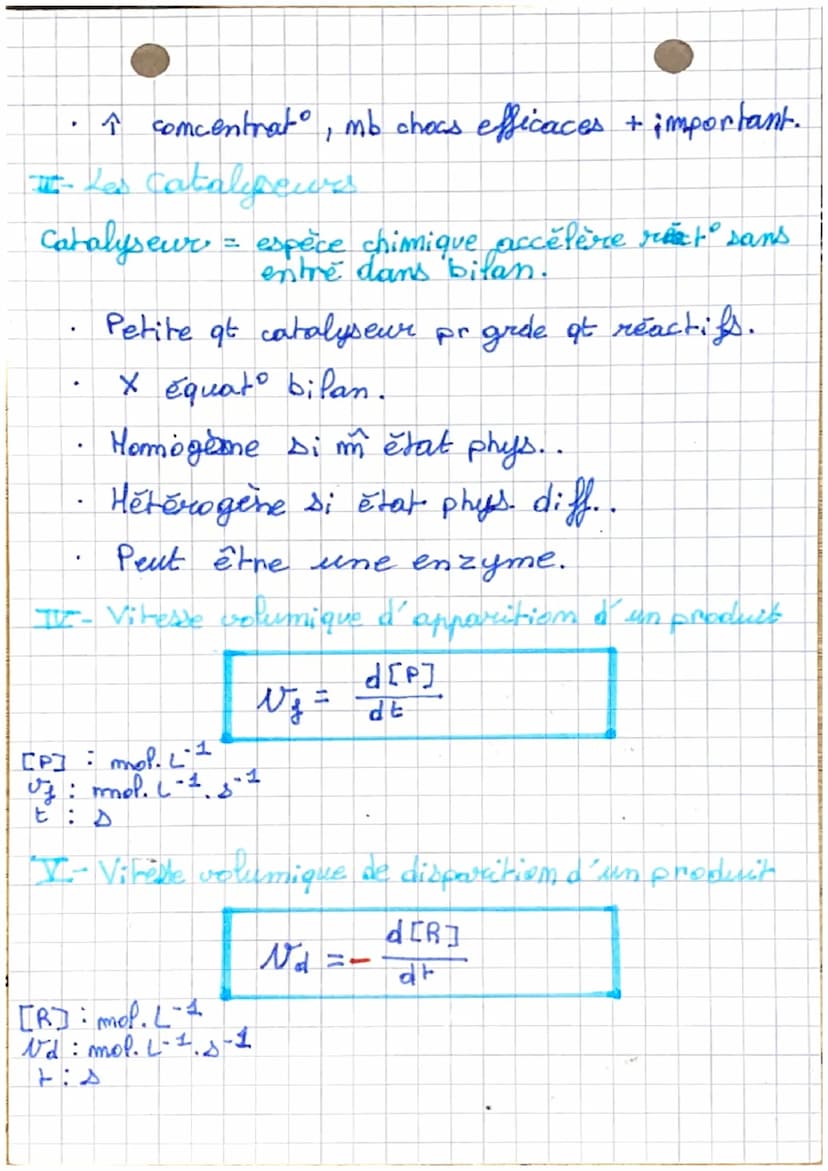 . ↑ concentrat°, nb chocs efficaces + important.
II- Les Catalyseurs
Catalyseur = espèce chimique accélère réact° sans
entré dans bilan.
. Petite qt catalyseur pr grde qt réactifs.
. X équat° bilan.
. Homogène si m̂ état phys..
. Hétérogène si état phys. diff..
. Peut être une enzyme.
IV- Vitesse volumique d'apparition d'un produit
vf = d[P]/dt
[P] : mol.L⁻¹
vf : mol.L⁻¹.s⁻¹
t : s
V- Vitesse volumique de disparition d'un produit
vd = - d[R]/dt
[R] : mol.L⁻¹
vd : mol.L⁻¹.s⁻¹
t : s